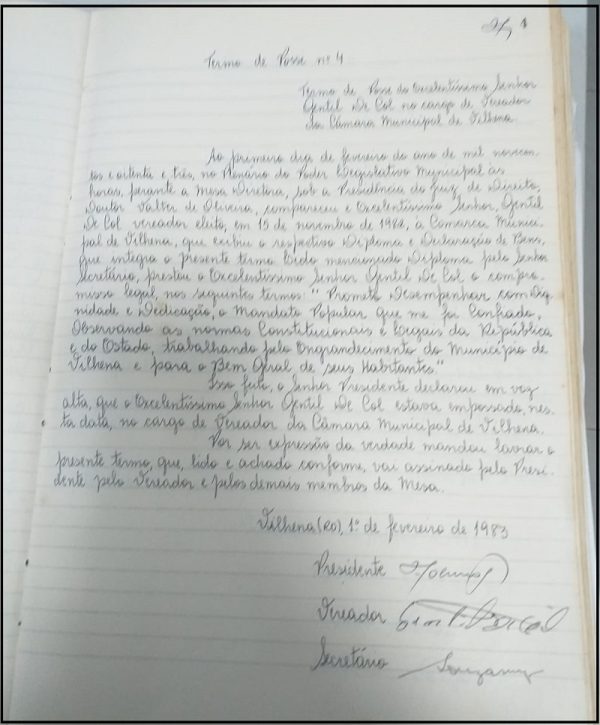 1
Termo de Posse nº 4
Termo de Posse do Excelentíssimo Senhor
Gentil De Col no cargo de Vereador
da Câmara Municipal de Vilhena.
Ao primeiro dia de fevereiro do ano de mil novecen-
tos e oitenta e três, no Plenário do Poder Legislativo Municipal às
horas, perante a Mesa Diretora, sob a Presidência do Juiz de Direito,
Doutor Valter de Oliveira, compareceu o Excelentíssimo Senhor, Gentil
De Col vereador eleito, em 15 de novembro de 1982, à Comarca Munici-
pal de Vilhena, que exibiu o respectivo Diploma e Declaração de Bens,
que integra o presente termo. Lido mencionado Diploma pelo Senhor
Secretário, prestou o Excelentíssimo Senhor Gentil De Col o compro-
misso legal, nos seguintes termos: "Prometo Desempenhar com Dig-
nidade e Dedicação, o Mandato Popular que me foi Confiado,
Observando as normas Constitucionais e Legais da República
e do Estado, trabalhando pelo Engrandecimento do Município de
Vilhena e para o Bem Geral de seus Habitantes."
Isso feito, o Senhor Presidente declarou em voz
alta, que o Excelentíssimo Senhor Gentil De Col estava empossado, nes-
ta data, no cargo de Vereador da Câmara Municipal de Vilhena.
Por ser expressão da verdade mandou lavrar o
presente termo, que, lido e achado conforme, vai assinado pelo Presi-
dente pelo Vereador e pelos demais membros da Mesa.
Vilhena (RO), 1º de fevereiro de 1983
Presidente
Vereador Gentil De Col
Secretário